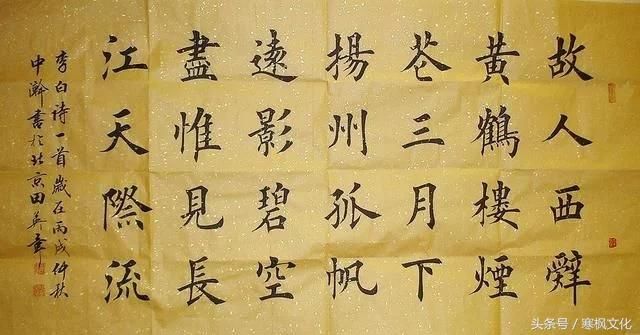 故人西辭
黃鶴樓煙
花三月下
揚州孤帆
遠影碧空
盡惟見長
江天際流
李白诗一首歲在丙戌仲秋
中澣書於北京田英章
头条号／寒枫文化